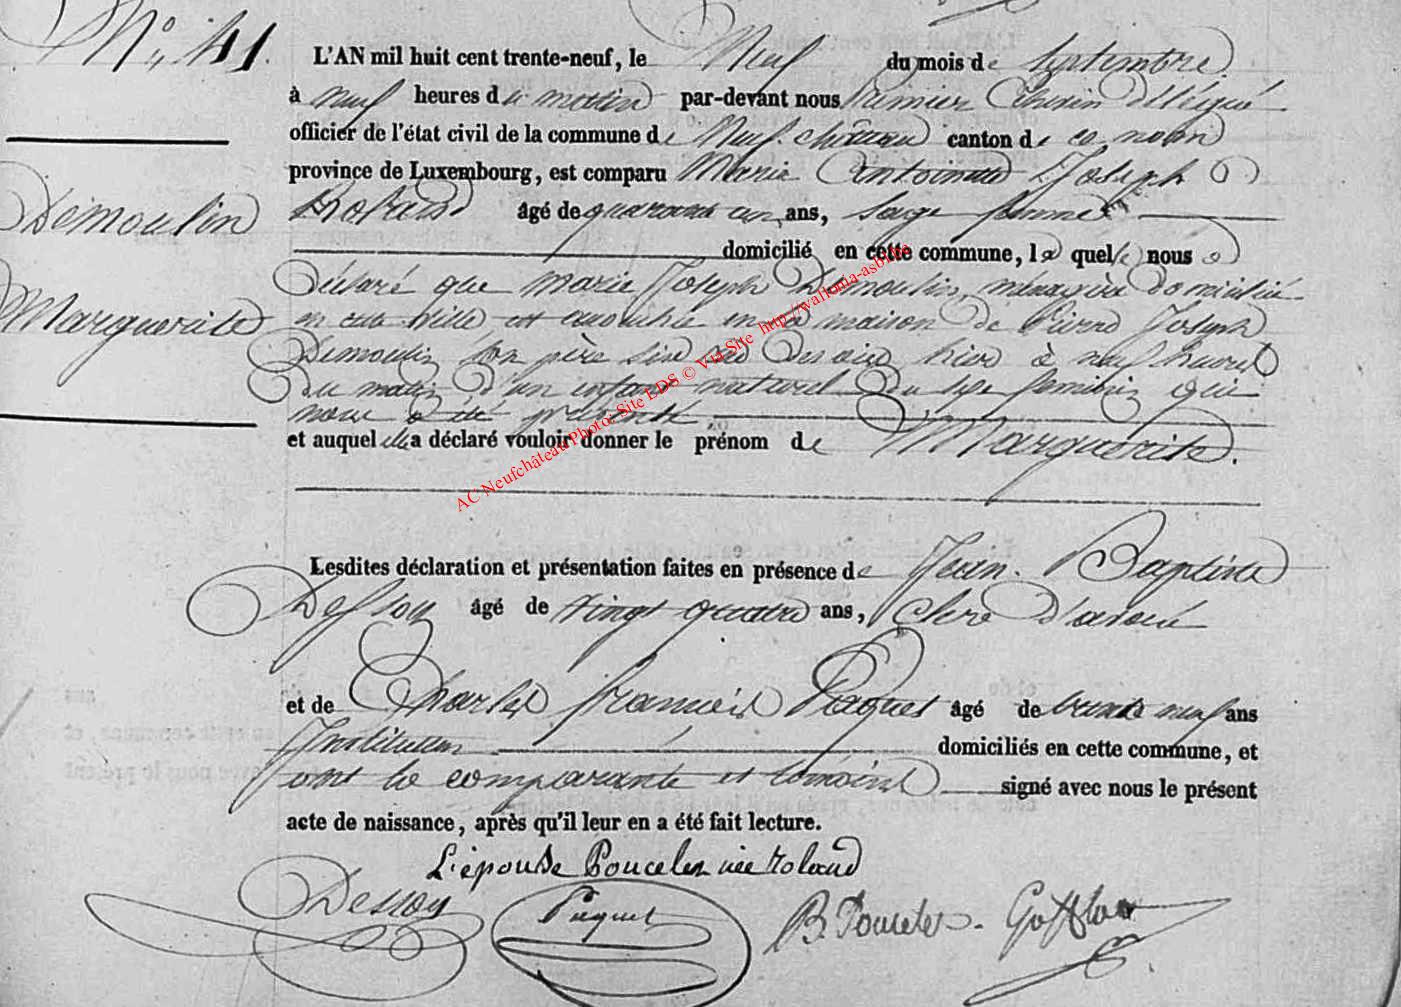 N° 41.
L'AN mil huit cent trente-neuf, le Neuf du mois de Septembre
à neuf heures du matin par-devant nous Premier Echevin délégué
officier de l'état civil de la commune de Neufchâteau canton de ce nom
province de Luxembourg, est comparu Marie Antoinette Joseph
Roland âgé de quarante un ans, Sage femme
domicilié en cette commune, laquelle nous a
Demoulin
Marguerite
déclaré que Marie Joseph Demoulin, ménagère domiciliée
en cette ville est accouchée en la maison de Pierre Joseph
Demoulin son père hier à neuf heures
du matin d'un enfant naturel du sexe féminin qui
nous a été présenté
et auquel elle a déclaré vouloir donner le prénom de Marguerite.
AC Neufchâteau Photo: Site LDS © Via Site http://wallonia-asbl.be
Lesdites déclaration et présentation faites en présence de Jean-Baptiste
Dessoy âgé de vingt quatre ans, Clerc d'avoué
et de Charles François Paquet âgé de trente neuf ans
Instituteur domiciliés en cette commune, et
ont la comparante et témoins signé avec nous le présent
acte de naissance, après qu'il leur en a été fait lecture.
L'épouse Poncelet née roland
Dessoy Paquet B. Poncelet